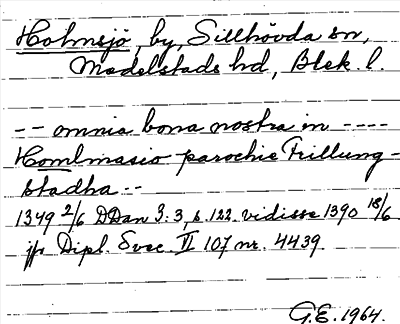 Holmsjö, by, Sillhövda sn,
Medelstads hd, Blek. l.
-- omnia bona nostra in ----
Homlmasio parochie Frillung-
stadha --
1349 2/6 DDan 3:3, s. 122. vidisse 1390 18/6
jfr Dipl. Svec. II 107 nr. 4439.
G.E. 1964.